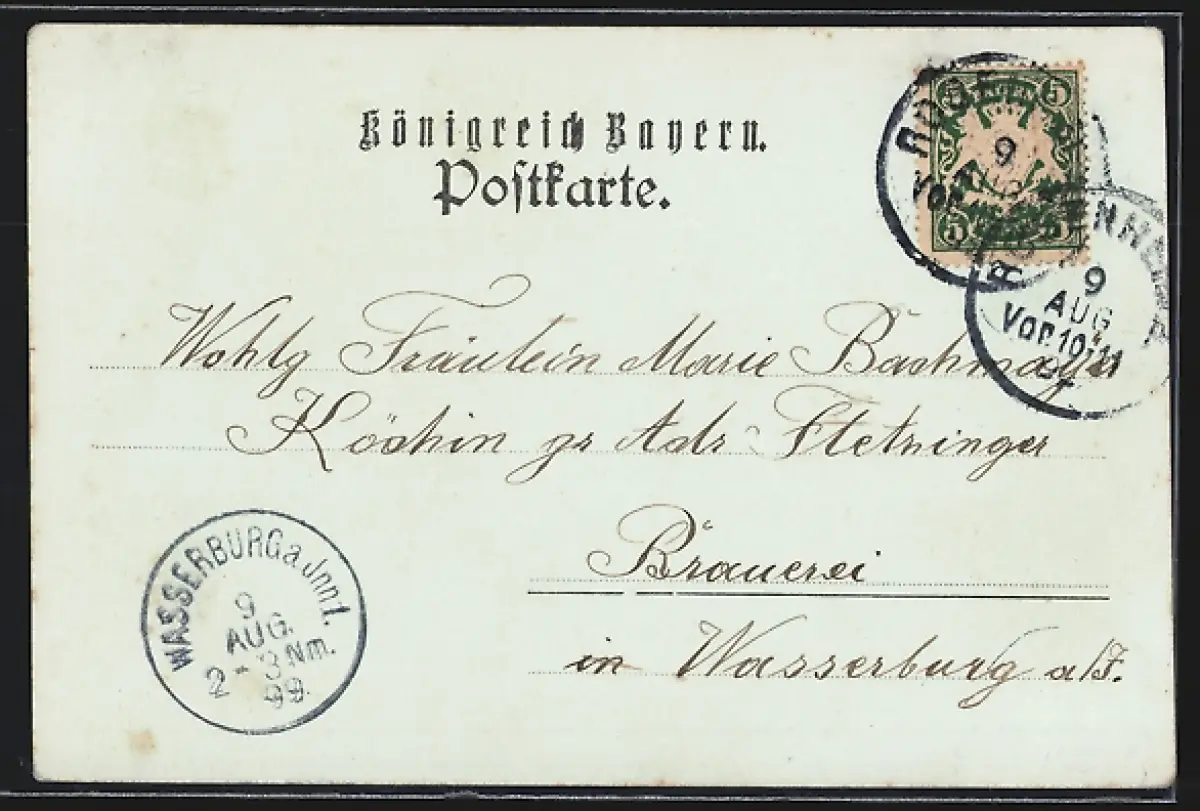 Königreich Bayern.
Postkarte.
5 5
9
Vor.
5 5
9
AUG
Vor. 10-11
Wohlg Fräulein Marie Bachmayer
Köchin zr Adr Stetzinger
Bräuerei
in Wasserburg a/I.
WASSERBURG a Jnn 1.
9
AUG.
2-3 Nm.
99